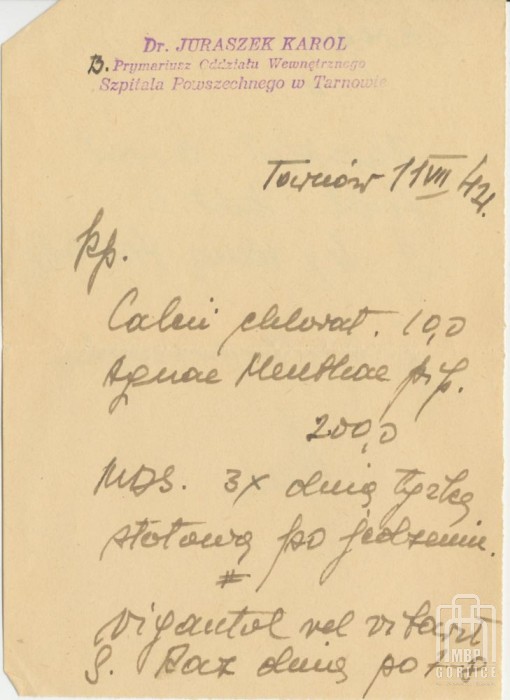 Dr. JURASZEK KAROL
B. Prymariusz Oddziału Wewnętrznego
Szpitala Powszechnego w Tarnowie
Tarnów 11 VII 44.
Rp.
Calcii chlorat. 10,0
Aquae Menthae pip.
200,0
MDS. 3x dnia łyżkę
stołową po jedzeniu.
#
Vigantol vel
S. Raz dnia po
MBP
GORLICE